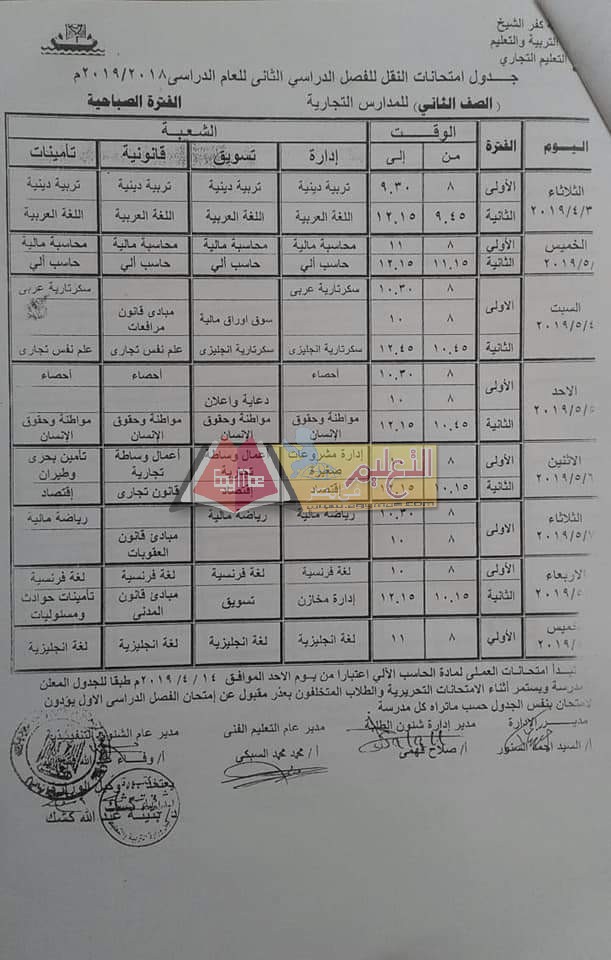 كفر الشيخ
التربية والتعليم
التعليم التجاري
جدول امتحانات النقل للفصل الدراسي الثانى للعام الدراسى ٢٠١٩/٢٠١٨م
(الصف الثاني) للمدارس التجارية الفترة الصباحية
اليوم الفترة الوقت الشعبة
من إلى إدارة تسويق قانونية تأمينات
الثلاثاء الأولى ٨ ٩.٣٠ تربية دينية تربية دينية تربية دينية تربية دينية
٢٠١٩/٤/٣ الثانية ٩.٤٥ ١٢.١٥ اللغة العربية اللغة العربية اللغة العربية اللغة العربية
الخميس الأولي ٨ ١١ محاسبة مالية محاسبة مالية محاسبة مالية محاسبة مالية
٢٠١٩/٥/ الثانية ١١.١٥ ١٢.١٥ حاسب ألي حاسب ألي حاسب ألي حاسب ألي
السبت الاولى ٨ ١٠.٣٠ سكرتارية عربى سكرتارية عربى
٢٠١٩/٥/٤ ٨ ١٠ سوق اوراق مالية مبادى قانون
مرافعات
الثانية ١٠.٤٥ ١٢.٤٥ سكرتارية انجليزى سكرتارية انجليزى علم نفس تجارى علم نفس تجارى
الاحد الأولى ٨ ١٠.٣٠ أحصاء أحصاء أحصاء
٢٠١٩/٥/ ٨ ١٠ دعاية واعلان
الثانية ١٠.٤٥ ١٢.١٥ مواطنة وحقوق مواطنة وحقوق مواطنة وحقوق مواطنة وحقوق
الإنسان الإنسان الإنسان الإنسان
الاثنين ٨ إدارة مشروعات أعمال وساطة أعمال وساطة تأمين بحرى
صغيرة تجارية وطيران
٢٠١٩/٥/٦ ١٠.١٥ ١٢.١٥ إقتصاد إقتصاد قانون تجارى إقتصاد
الثلاثاء الاولى ٨ ١٠.٣٠ رياضة مالية رياضة مالية رياضة مالية
٢٠١٩/٥/٧ ٨ ١٠ مبادئ قانون
العقوبات
الاربعاء الأولى ٨ ١٠ لغة فرنسية لغة فرنسية لغة فرنسية لغة فرنسية
الثانية ١٠.١٥ ١٢.١٥ إدارة مخازن تسويق مبادئ قانون تأمينات حوادث
المدنى ومسئوليات
الأولي ٨ ١١ لغة انجليزية لغة انجليزية لغة انجليزية لغة انجليزية
تبدأ امتحانات العملى لمادة الحاسب الألي اعتبارا من يوم الاحد الموافق ١٤ / ٤ / ٢٠١٩م طبقا للجدول المعلن
مدرسة ويستمر أثناء الامتحانات التحريرية والطلاب المتخلفون بعذر مقبول عن إمتحان الفصل الدراسى الاول يؤدون
لامتحان بنفس الجدول حسب ماتراه كل مدرسة
مدير الإدارة مدير إدارة شئون الطلبة مدير عام التعليم الفنى مدير عام الشئون التنفيذية
أ/ السيد احمد أ/ صلاح فهمى أ/ محمد محمد السبكى أ/ وفاء
يعتمد وكيل
د/ بثينة عبد الله كشك
التعليم